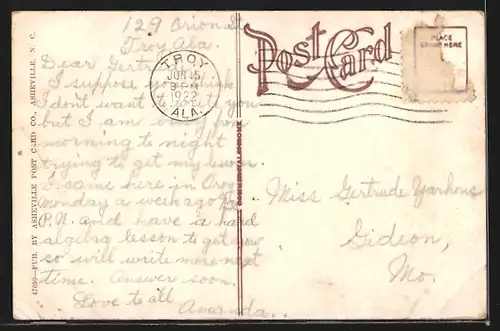 129 Orion St
Troy Ala.
Dear Gertrude
I suppose you think
I don't want to write you
but I am busy from
morning to night
trying to get my lesson.
I came here in Troy
Monday a week ago
P.M. and have a hard
algebra lesson to get now
so will write more next
time. Answer soon.
Love to all
Amanda.
TROY
JUN 15
1922
ALA.
Post Card
PLACE
STAMP HERE
Miss Gertrude
Gideon,
Mo.
PUB. BY ASHEVILLE POST CARD CO., ASHEVILLE, N. C.